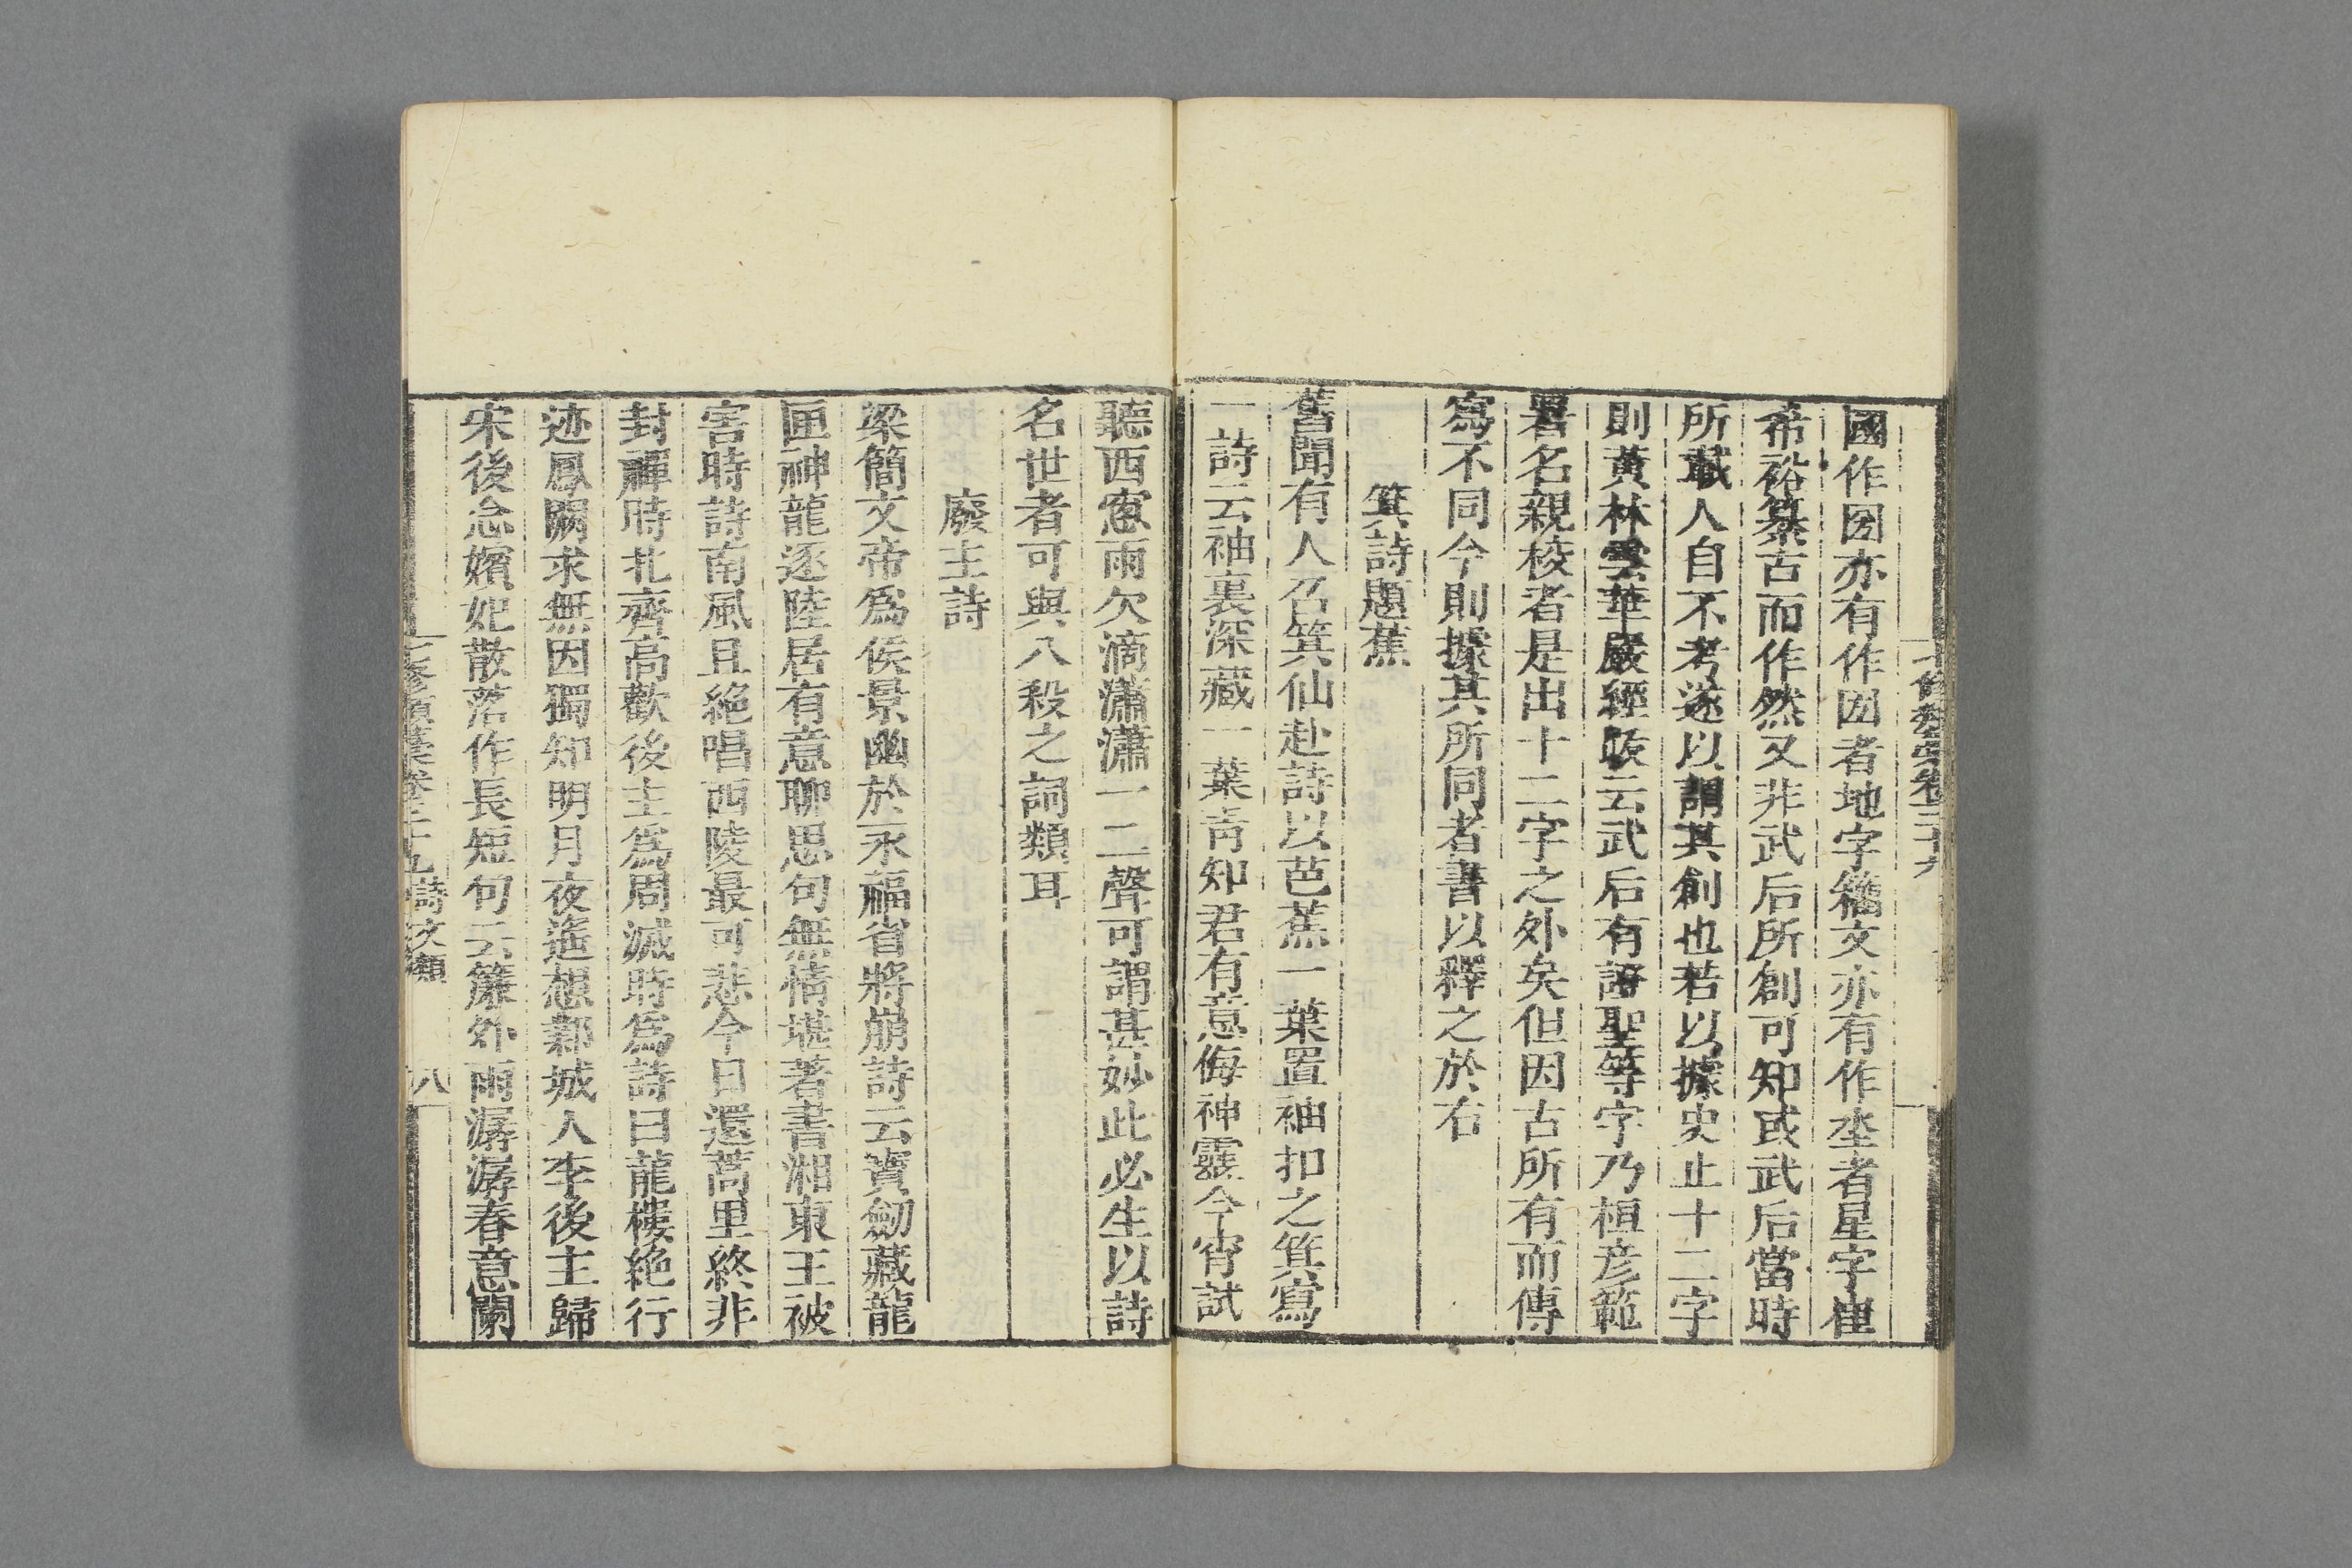 國作圀亦有作囶者地字籀文亦有作坔者星字崔
希裕纂古而作然又非武后所創可知或武后當時
所藏人自不考遂以謂其創也若以據史止十二字
則黃林雲華嚴經䟦云武后有證聖等字乃桓彦範
署名親校者是出十二字之外矣但因古所有而傳
寫不同今則據其所同者書以釋之於右
箕詩題蕉
舊聞有人召箕仙赴詩以芭蕉一葉置袖扣之箕寫
一詩云袖裏深藏一葉青知君有意侮神靈今宵試
聽西窓雨欠滴瀟瀟一二聲可謂甚妙此必生以詩
名世者可與八殺之詞類耳
廢主詩
梁簡文帝爲侯景幽於永福省將崩詩云寳劒藏龍
匣神龍逐陸居有意聊思句無情堪著書湘東王被
害時詩南風且絶唱西陵最可悲今日還蒿里終非
封禪時北齊高歡後主爲周滅時爲詩曰龍樓絶行
迹鳳闕求無因獨知明月夜遙想鄴城人李後主歸
宋後念嬪妃散落作長短句云簾外雨潺潺春意闌
七修類藁卷二十九 詩文類 八